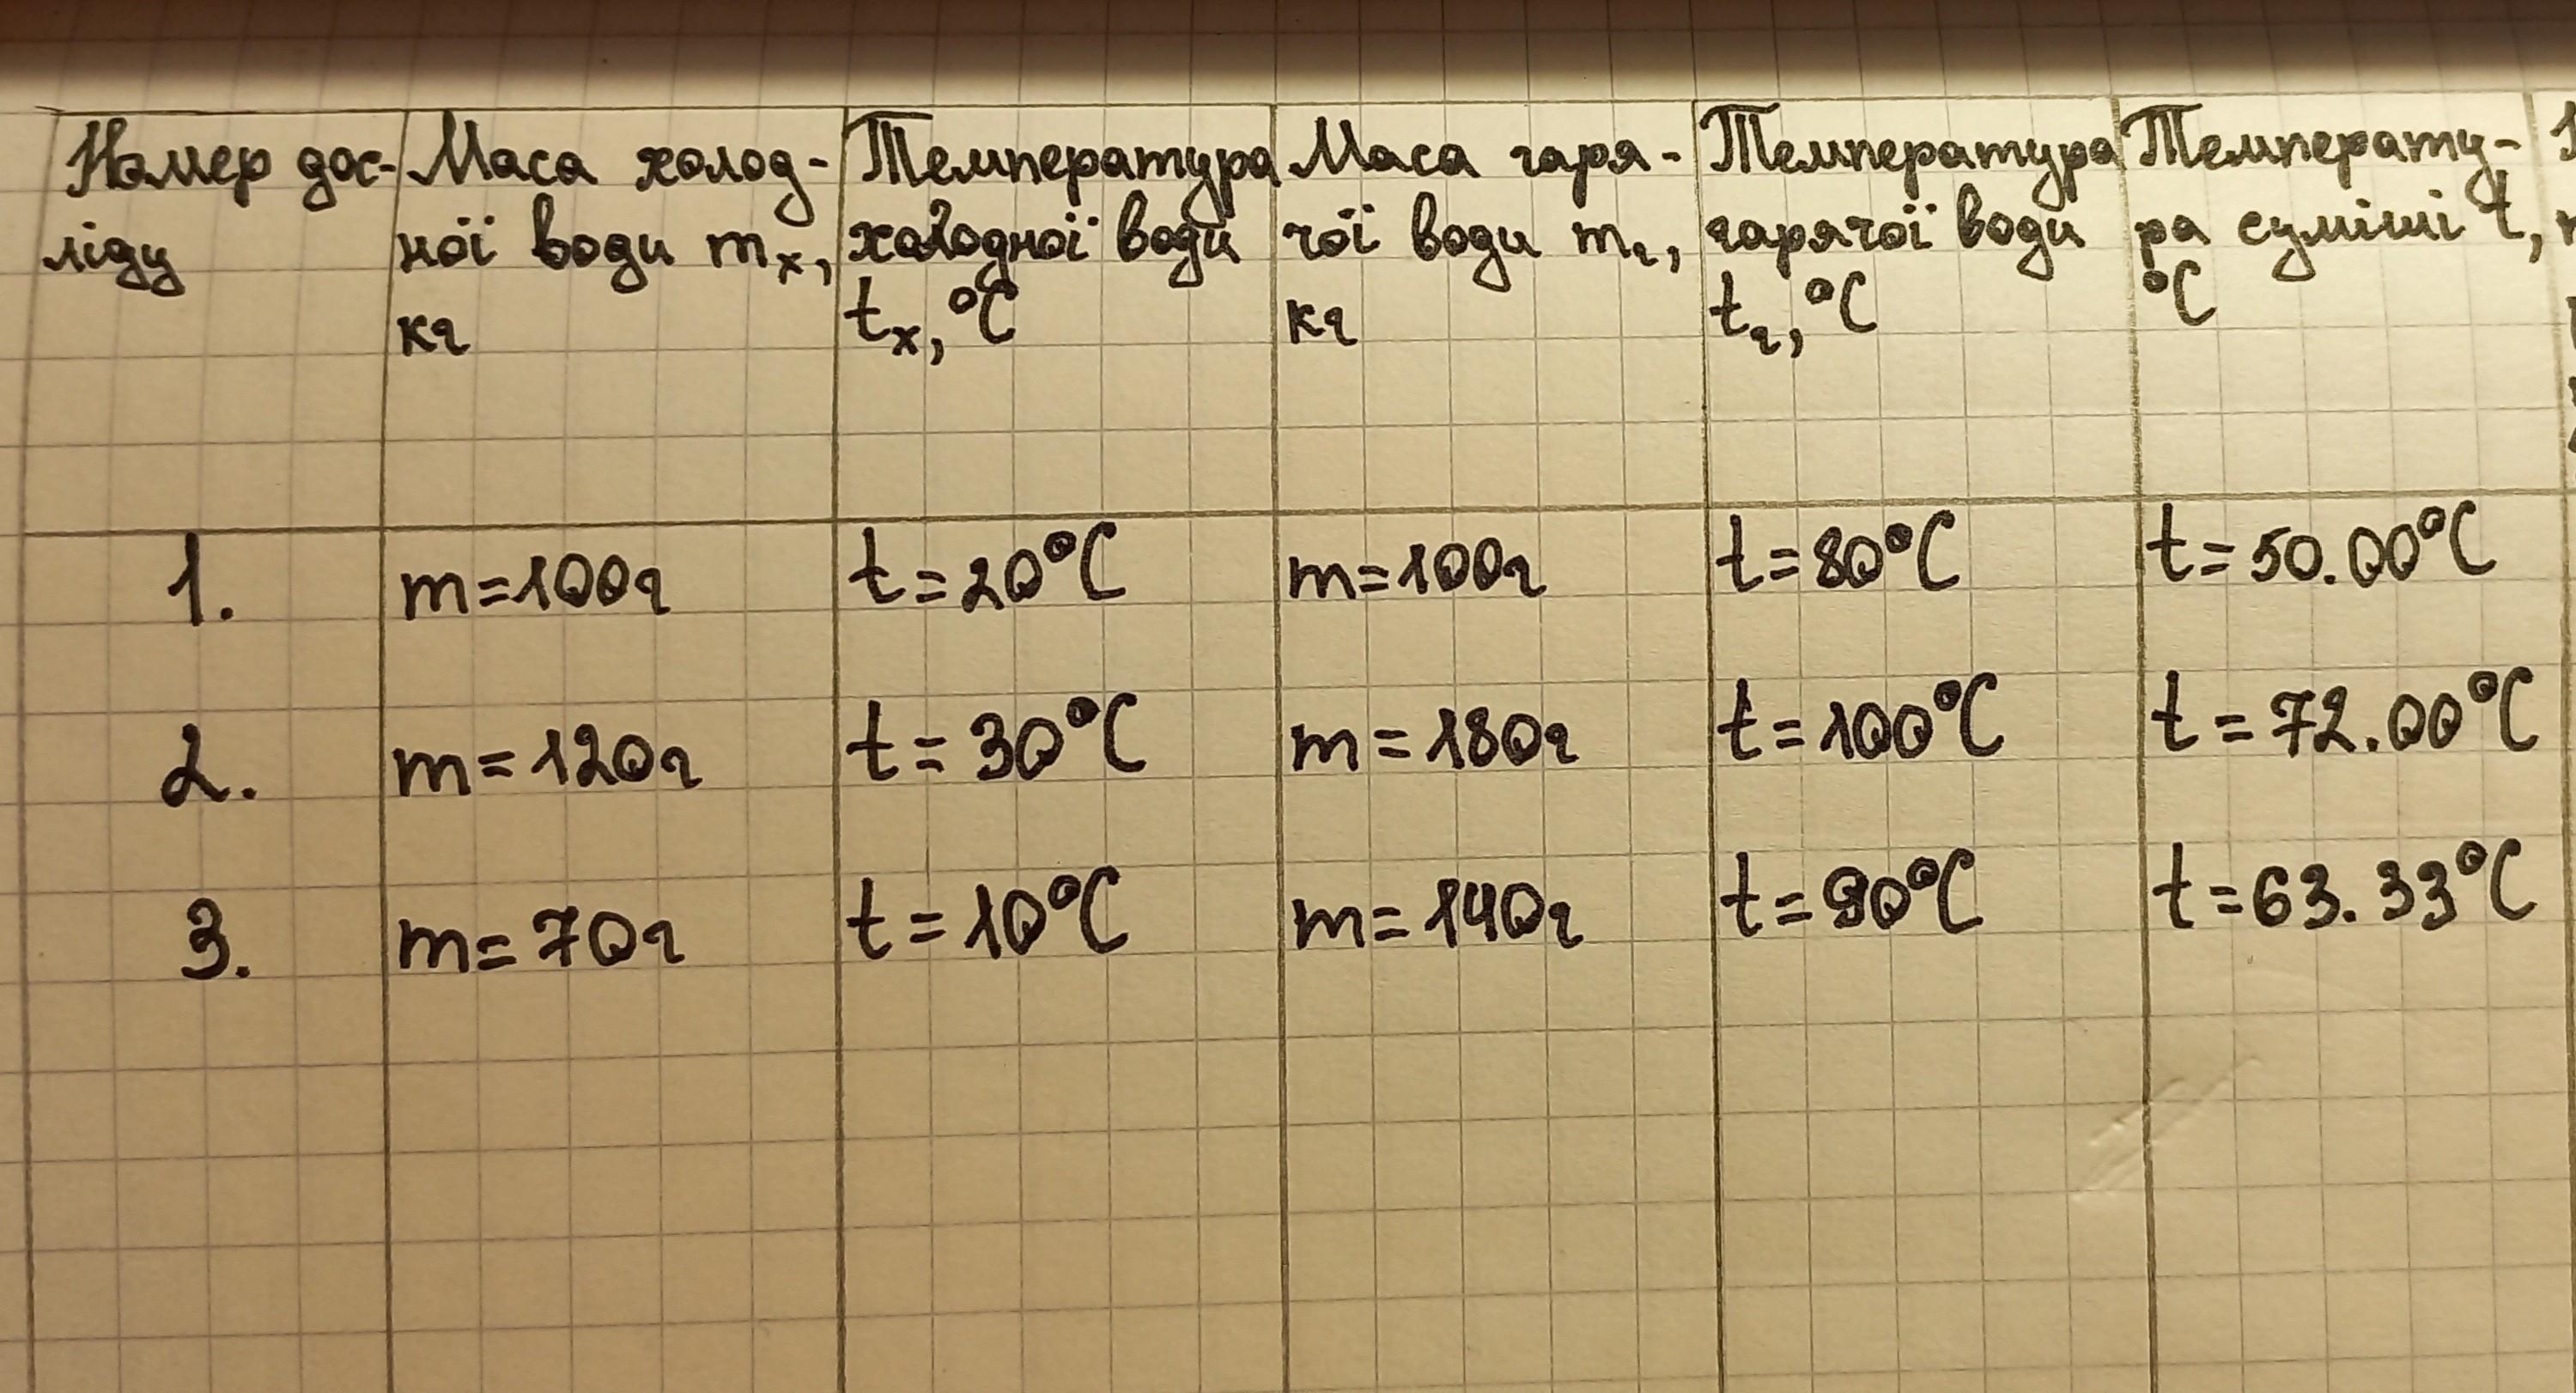 Номер дос-
ліду
Маса холод-
ної води mₓ,
кг
Температура
холодної води
tₓ, °C
Маса гаря-
чої води mг,
кг
Температура
гарячої води
tг, °C
Температу-
ра суміші t,
°C
1. m=100г t=20°C m=100г t=80°C t=50.00°C
2. m=120г t=30°C m=180г t=100°C t=72.00°C
3. m=70г t=10°C m=140г t=90°C t=63.33°C